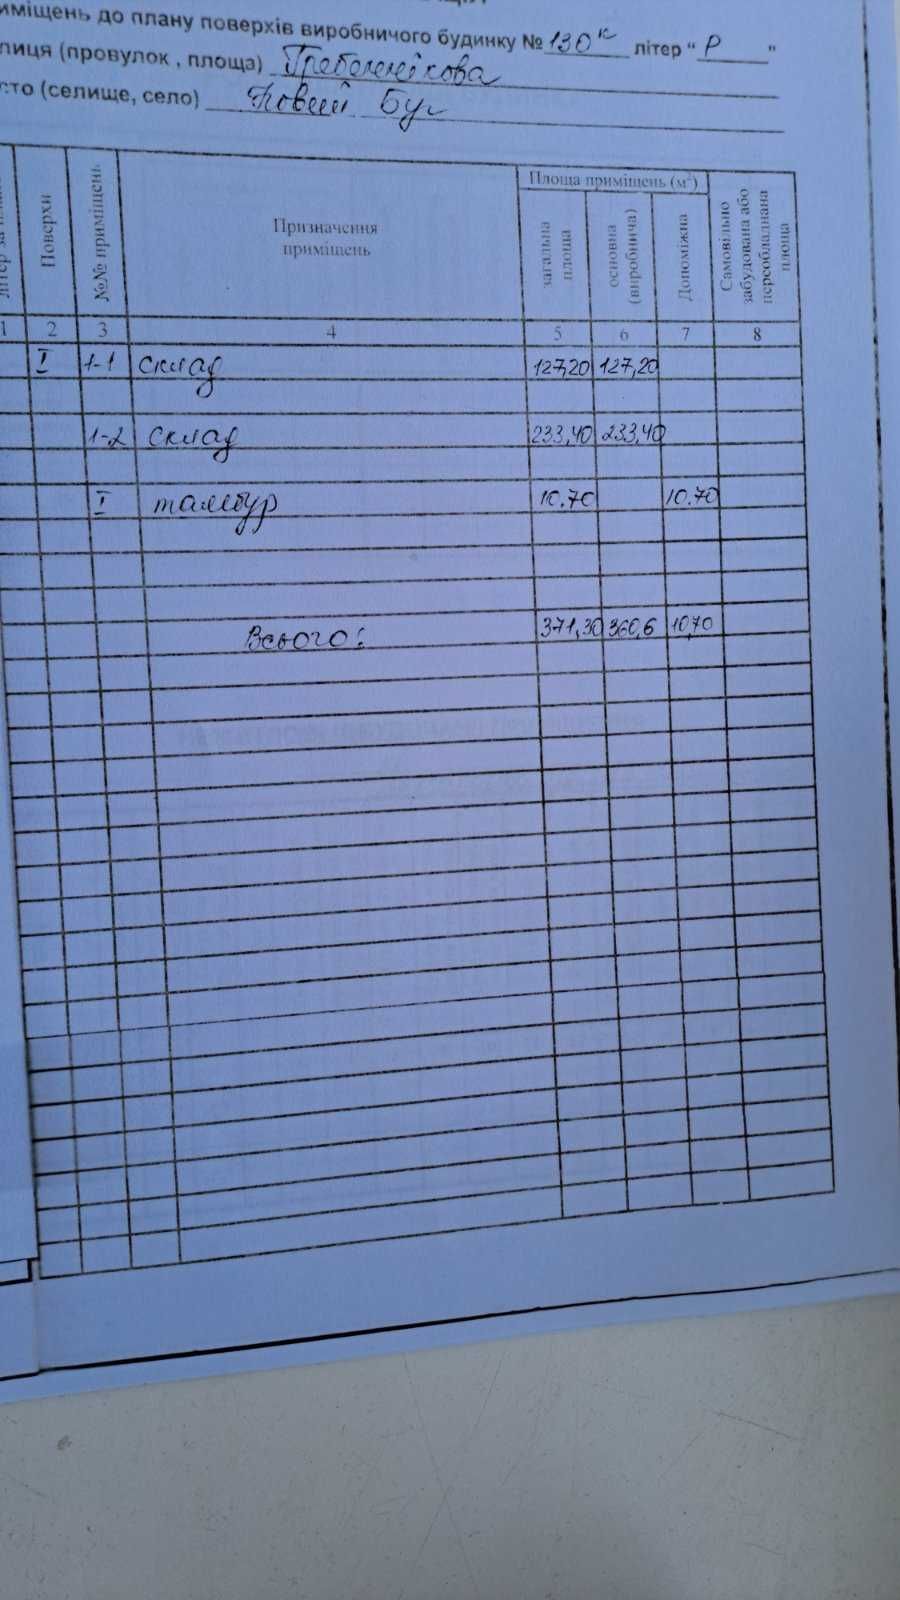 иміщень до плану поверхів виробничого будинку № 130к літер " Р "
лиця (провулок , площа) Гребеннікова
сто (селище, село) Новий Буг
Поверхи
№№ приміщень
Призначення
приміщень
Площа приміщень (м²)
загальна
площа
основна
(виробнича)
Допоміжна
Самовільно
забудована або
переобладнана
площа
1 2 3 4 5 6 7 8
I 1-1 склад 127,20 127,20
1-2 склад 233,40 233,40
I тамбур 10.70 10.70
Всього: 371,30 360,6 10,70